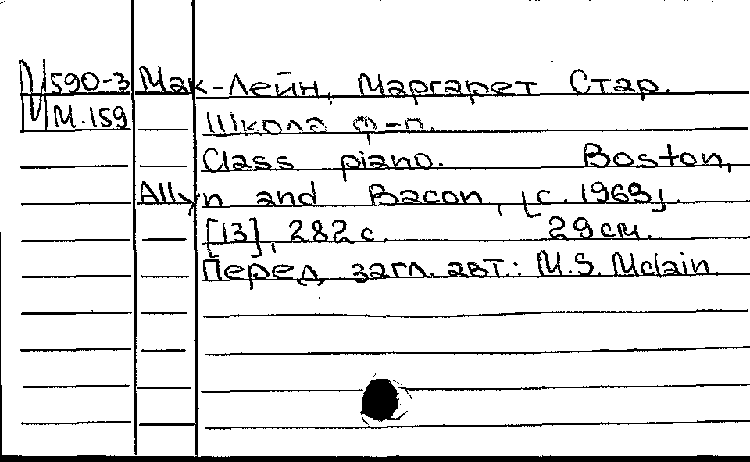 М590-3 Мак-Лейн, Маргарет Стар.
М.159 Школа ф-п.
Class piano. Boston,
Allyn and Bacon, [c. 1969].
[13], 282 с. 29 см.
Перед загл. авт.: M.S. Mclain